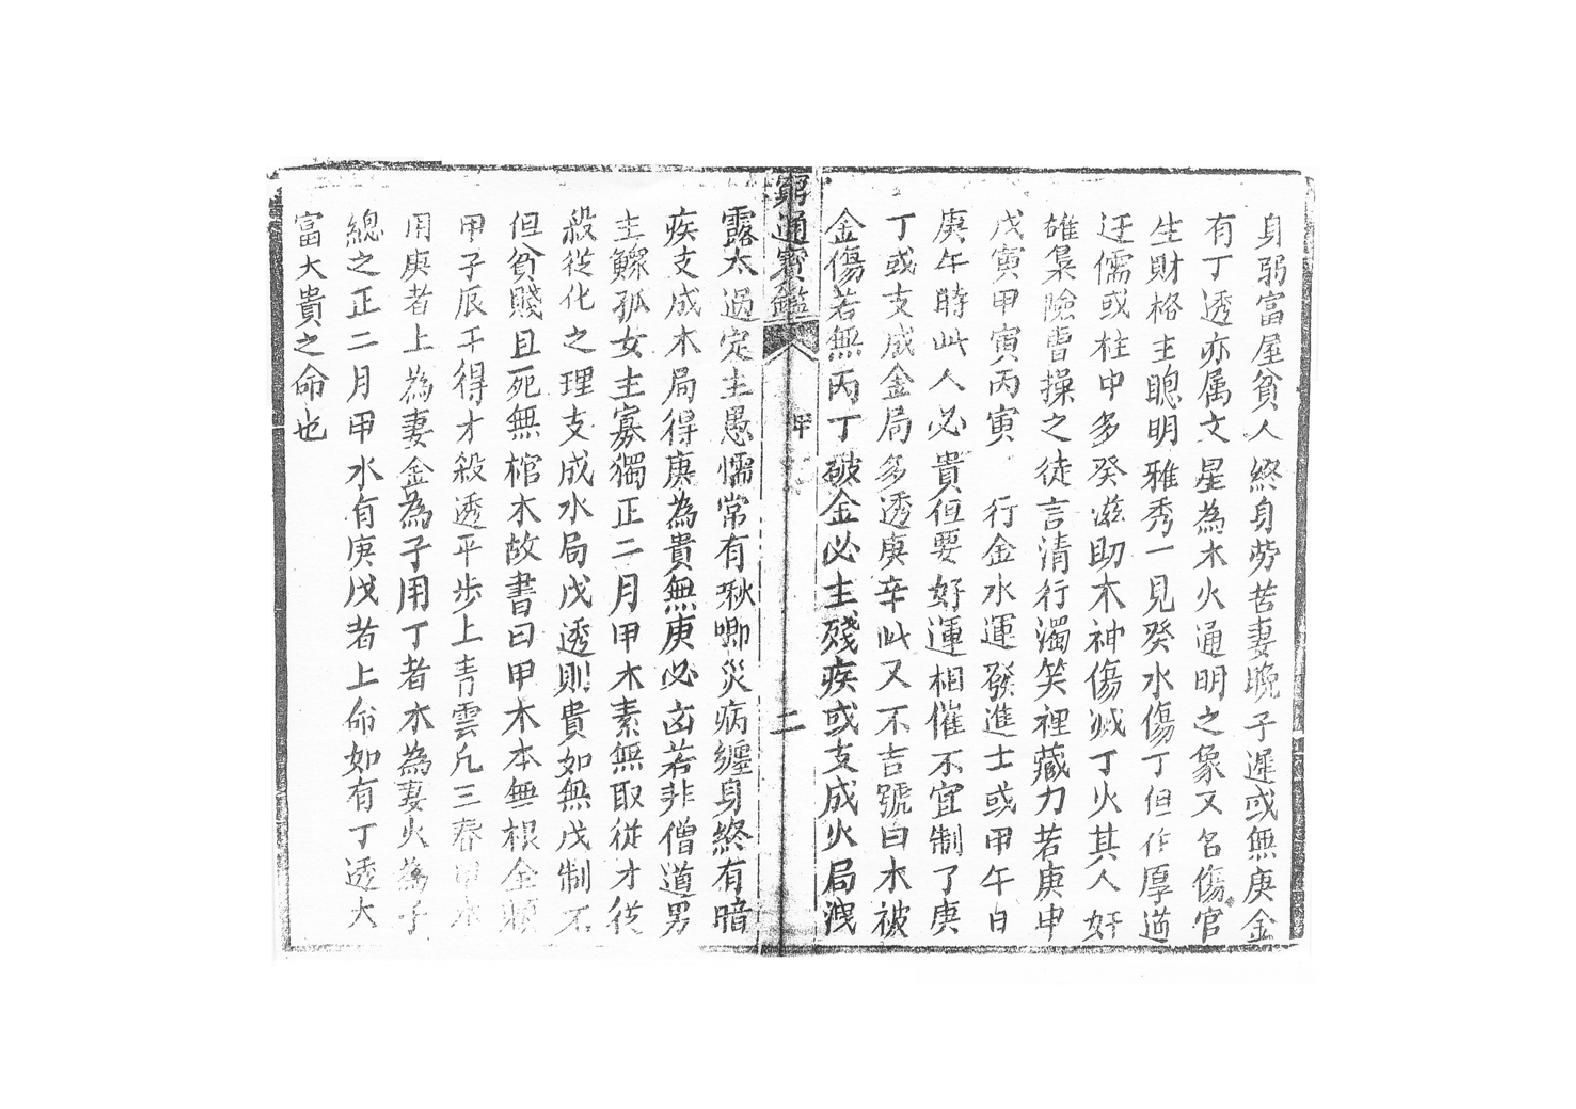 身弱富屋貧人終身勞苦妻晚子遲或無庚金
有丁透亦属文星為木火通明之象又名傷官
生財格主聰明雅秀一見癸水傷丁但作厚道
迂儒或柱中多癸滋助木神傷滅丁火其人奸
雄梟險曹操之徒言清行濁笑裡藏刀若庚申
戊寅甲寅丙寅 行金水運發進士或甲午日
庚午時此人必貴但要好運相催不宜制了庚
丁或支成金局多透庚辛此又不吉號曰木被
金傷若無丙丁破金必主殘疾或支成火局洩
窮通寳鑑
甲
二
露太過定主愚懦常有啾唧災病纏身終有暗
疾支成木局得庚為貴無庚必凶若非僧道男
主鰥孤女主寡獨正二月甲木素無取從才從
殺從化之理支成水局戊透則貴如無戊制不
但貧賤且死無棺木故書曰甲木本無根全賴
甲子辰干得才殺透平步上青雲凡三春甲木
用庚者土為妻金為子用丁者木為妻火為子
總之正二月甲木有庚戊者上命如有丁透大
富大貴之命也